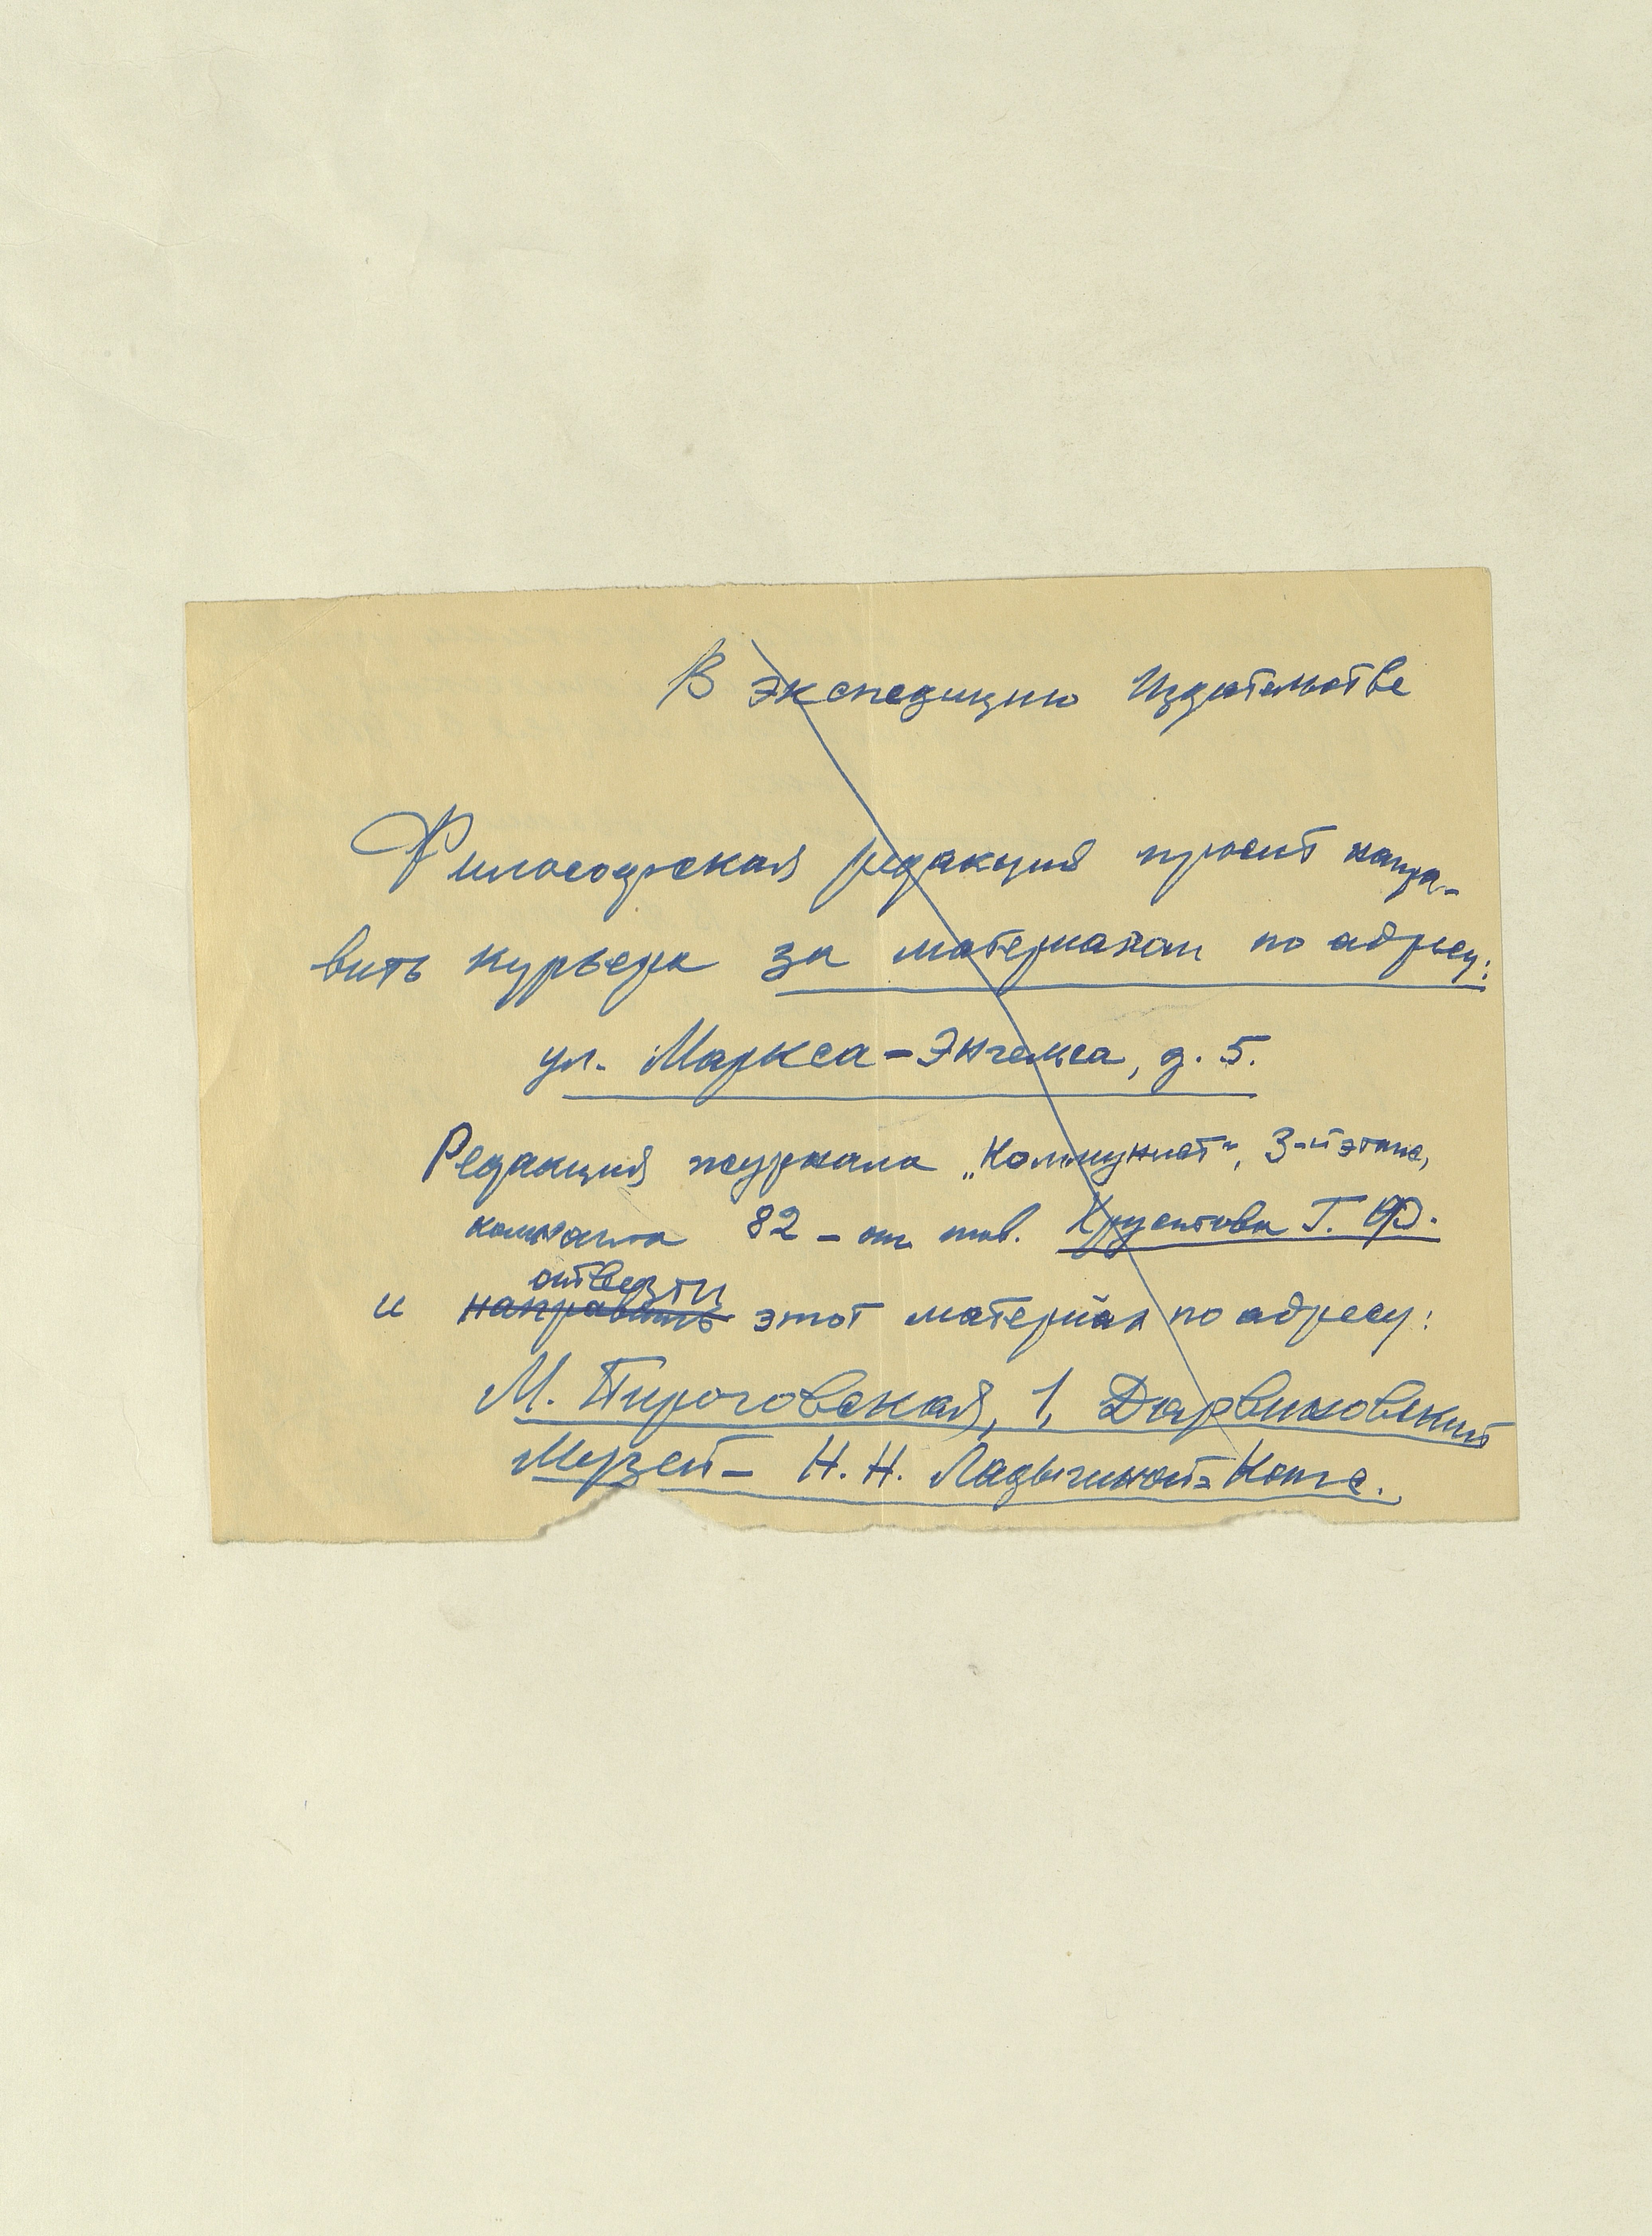 В экспедицию Издательства
Философская редакция просит напра-
вить курьера за материалом по адресу:
ул. Маркса-Энгельса, д. 5.
Редакция журнала „Коммунист", 3-й этаж,
комната 82 – от тов. Хрустова Г. Ф.
отвезти
и направить этот материал по адресу:
М. Пироговская, 1, Дарвиновский
Музей – Н. Н. Ладыгиной-Котс.